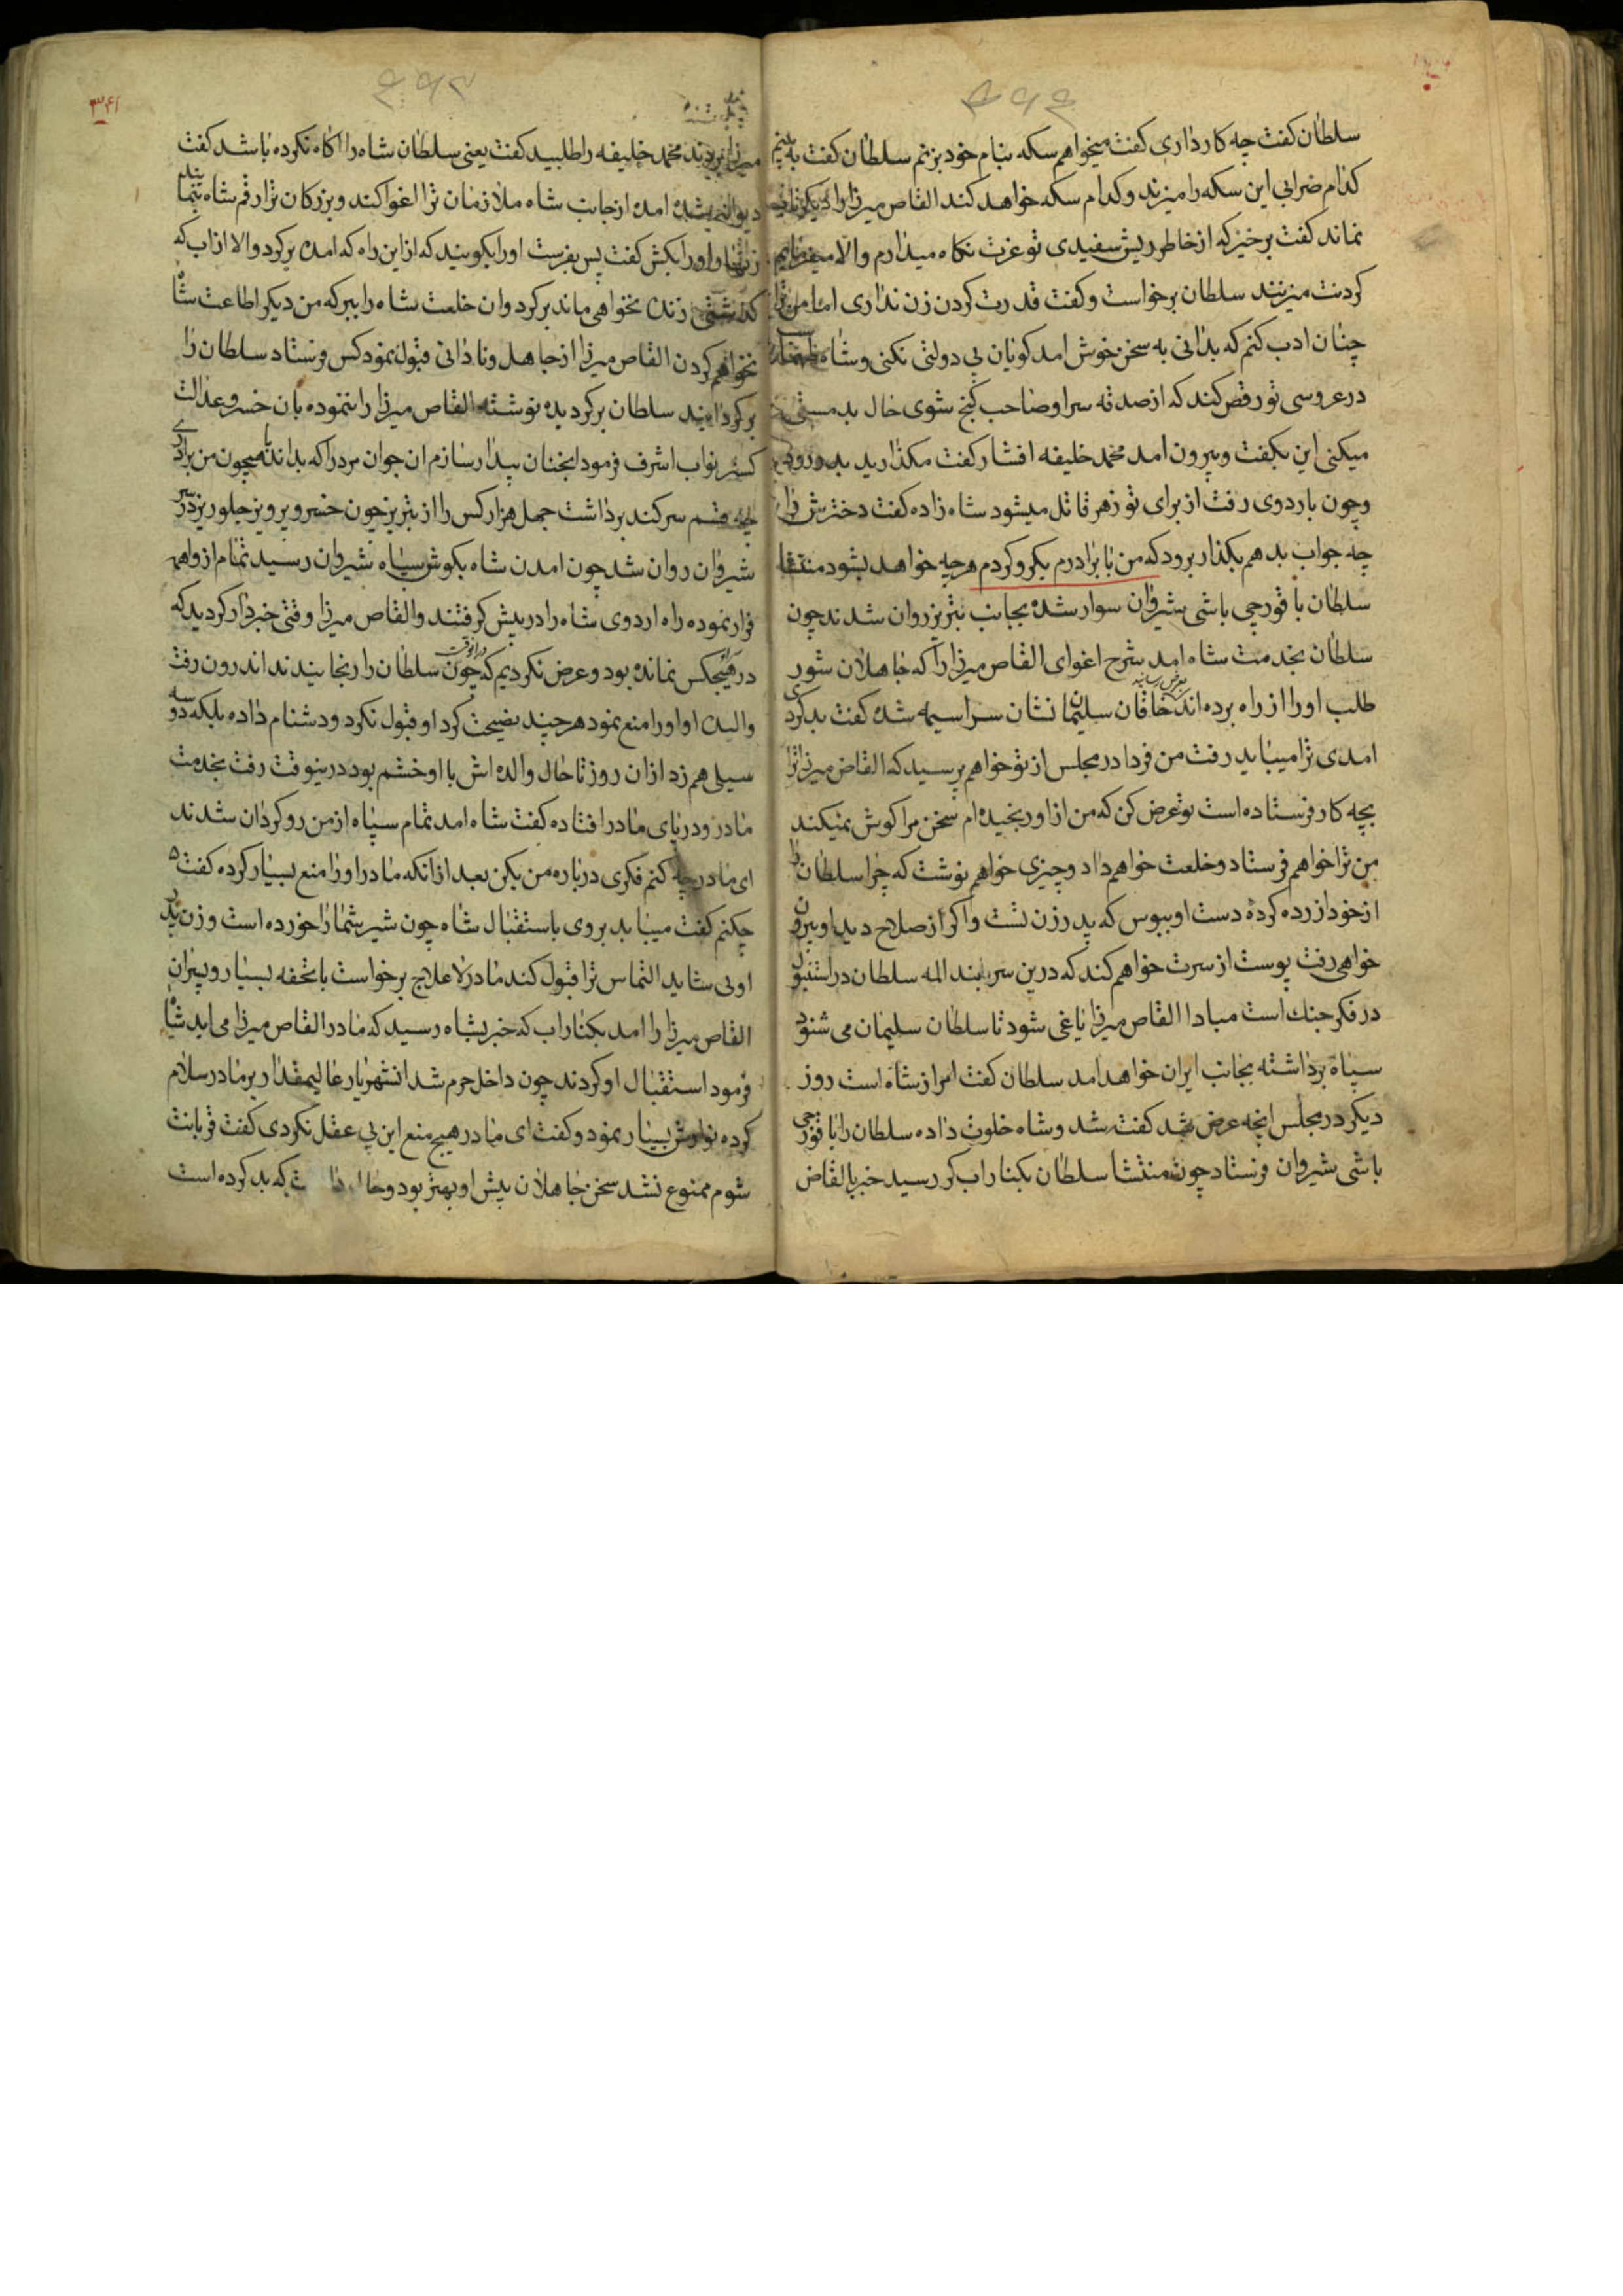 سلطان کفت چه کار داری کفت میخواهم سکه بنام خود بزنم سلطان کفت به بینم
کدام ضرابی این سکه را میزند و کدام سکه خواهد کند القاص میرزا را دیکر
نماند کفت برخیز که از خاطر ریش سفیدی تو عزت نکاه میدارم والا میفرمایم
کردنت میزنند سلطان برخواست و کفت قدرت کردن زدن نداری اما من ترا
چنان ادب کنم که بدانی به سخن خوش امد کویان بی دولتی نکنی و شاه طهماسب
در عروسی تو رقص کند که از صدقه سر او صاحب کنج شوی حال بدمستی
میکنی این بکفت و بیرون امد محمد خلیفه افشار کفت مکذارید بدر رود
و چون باردوی رفت از برای تو زهر قاتل میشود شاه زاده کفت دخترش را
چه جواب بدهم بکذار برود که من با برادرم یکرو کردم هرچه خواهد بشود منتشا
سلطان با قورچی باشی بشیروان سوار شده بجانب تبریز روان شدند چون
سلطان بخدمت شاه امد شرح اغوای القاص میرزا را که جاهلان شور
طلب او را از راه برده اند بعرض رسانید خاقان سلیمان نشان سراسیمه شده کفت بد کردی
امدی ترا میباید رفت من فردا در مجلس از تو خواهم پرسید که القاص میرزا ترا
بچه کار فرستاده است تو عرض کن که من از او رنجیده ام سخن مرا کوش نمیکند
من ترا خواهم فرستاد و خلعت خواهم داد و چیزی خواهم نوشت که چرا سلطان را
از خود ازرده کردهٔ دست او ببوس که پدر زن تست و اکر از صلاح دید او بیرون
خواهی رفت پوست از سرت خواهم کند که درین سر بند المه سلطان در استنبول
در فکر جنك است مبادا القاص میرزا یاغی شود تا سلطان سلیمان می شنود
سپاه برداشته بجانب ایران خواهد امد سلطان کفت امر از شاه است روز
دیکر در مجلس انچه عرض شد کفته شد و شاه خلوت داده سلطان را با قورچی
باشی بشیروان فرستاد چون منتشا سلطان بکنار اب کر رسید خبر بالقاص
میرزا بردند محمد خلیفه را طلبید کفت یعنی سلطان شاه را اکاه نکرده باشد کفت
دیوانه شده امده از جانب شاه ملازمان ترا اغوا کند و بزرکان ترا رقم شاه بنماید
او را بکش کفت پس بفرست او را بکویند که از این راه که امده برکرد والا از اب که
کذشتی زنده نخواهی ماند برکرد و ان خلعت شاه را ببر که من دیکر اطاعت شاه
نخواهم کردن القاص میرزا از جاهل و نادانی قبول نمود کس فرستاد سلطان را
برکردانیدند سلطان برکردیده نوشته القاص میرزا را بنموده بان خسرو عدالت
کستر نواب اشرف فرمود انجنان بیدار سازم ان جوان مرد را که بداند همچون من برادری
چه قسم سر کند برداشت چهل هزار کس را از تبریز چون خسرو پرویز جلو ریز بر سر
شیروان روان شد چون امدن شاه بکوش سپاه شیروان رسید تمام از واهمه
فرار نموده راه اردوی شاه را در پیش کرفتند و القاص میرزا وقتی خبردار کردید که
در هیچکس نمانده بود و عرض نکردیم که در انوقت چون سلطان را رنجانیدند اندرون رفت
والده او او را منع نمود هر چند نصیحت کرد او قبول نکرد و دشنام داده بلکه دو سه
سیلی هم زد از ان روز تا حال والده اش با او خشم بود درینوقت رفت بخدمت
مادر و در پای مادر افتاده کفت شاه امد تمام سپاه از من رو کردان شدند
ای مادر چه کنم فکری درباره من بکن بعد از انکه مادر او را منع بسیار کرده کفت
چکنم کفت میباید بروی باستقبال شاه چون شیر شما را خورده است و زن پدر
اوئی شاید التماس ترا قبول کند مادر لاعلاج برخواست با تحفه بسیار و پسران
القاص میرزا را امد بکنار اب که خبر بشاه رسید که مادر القاص میرزا می اید شاه
فرمود استقبال او کردند چون داخل حرم شد انشهریار عالیمقدار بر مادر سلام
کرده نوازش بسیار نمود و کفت ای مادر هیچ منع این بی عقل نکردی کفت قربانت
شوم ممنوع نشد سخن جاهلان پیش او بهتر بود و حالا که بد کرده است